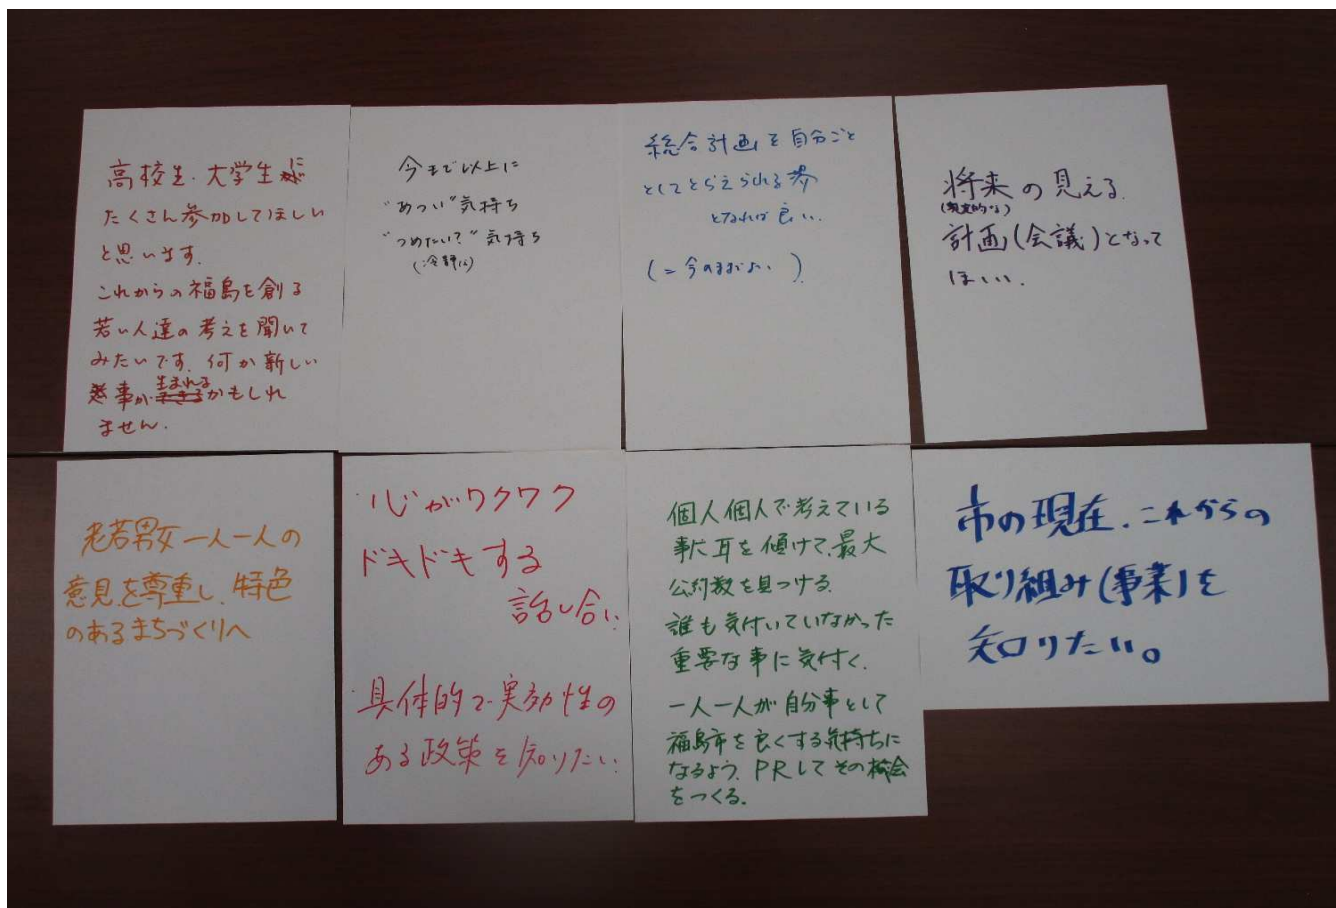 高校生・大学生に
たくさん参加してほしい
と思います。
これからの福島を創る
若い人達の考えを聞いて
みたいです。何か新しい
事が生まれるかもしれ
ません。
今まで以上に
"あつい"気持ち
"つめたい?"気持ち
(冷静に)
総合計画を自分ごと
としてとらえられる
となれば良い。
(=今のままでよい)
将来の見える
(現実的な)
計画(会議)となって
ほしい。
老若男女一人一人の
意見を尊重し、特色
のあるまちづくりへ
・心がワクワク
ドキドキする
話し合い
・具体的で実効性の
ある政策を知りたい
個人個人で考えている
事に耳を傾けて、最大
公約数を見つける。
誰も気付いていなかった
重要な事に気付く。
一人一人が自分事として
福島市を良くする気持ちに
なるよう、PRしてその機会
をつくる。
市の現在、これからの
取り組み(事業)を
知りたい。